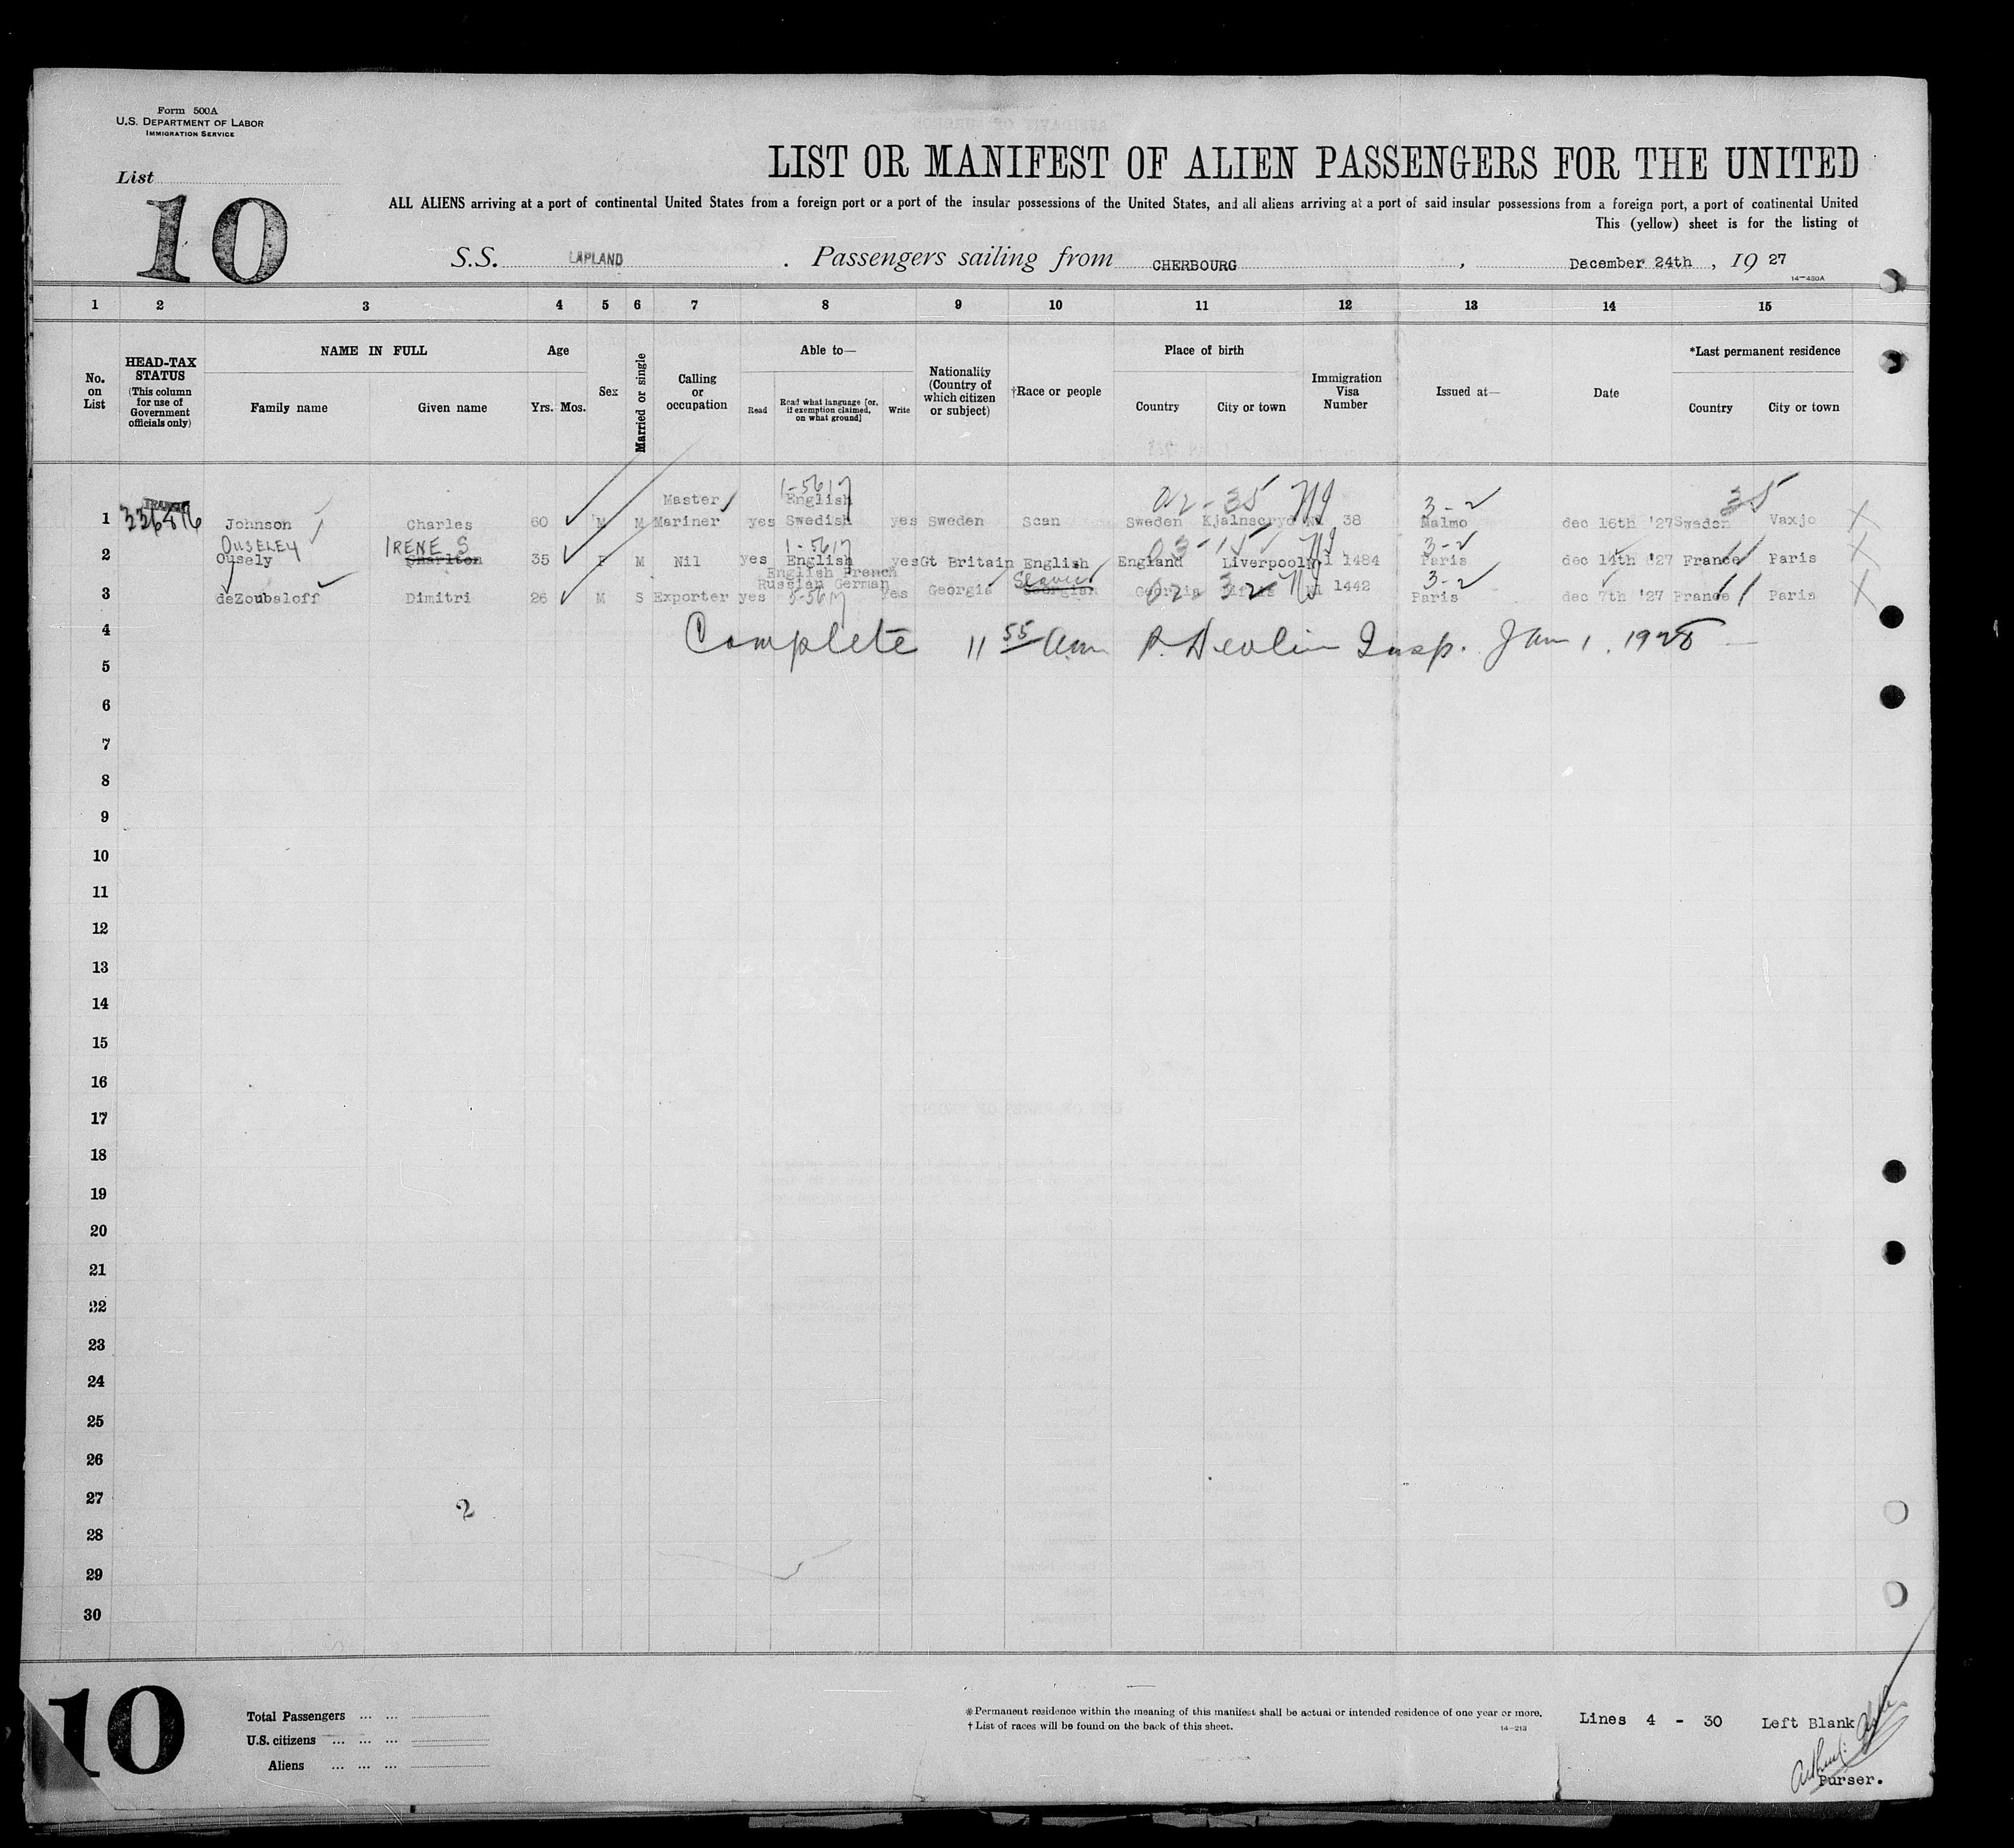 Form 500A
U.S. DEPARTMENT OF LABOR
IMMIGRATION SERVICE
List
10
LIST OR MANIFEST OF ALIEN PASSENGERS FOR THE UNITED
ALL ALIENS arriving at a port of continental United States from a foreign port or a port of the insular possessions of the United States, and all aliens arriving at a port of said insular possessions from a foreign port, a port of continental United
This (yellow) sheet is for the listing of
S.S. LAPLAND . Passengers sailing from CHERBOURG , December 24th , 19 27
14-480A
1 2 3 4 5 6 7 8 9 10 11 12 13 14 15
No. on List
HEAD-TAX STATUS
(This column for use of Government officials only)
NAME IN FULL
Family name Given name
Age
Yrs. Mos.
Sex
Married or single
Calling or occupation
Able to—
Read
Read what language [or, if exemption claimed, on what ground]
Write
Nationality (Country of which citizen or subject)
†Race or people
Place of birth
Country City or town
Immigration Visa Number
Issued at—
Date
*Last permanent residence
Country City or town
Master 1-5617 English 02-35 3-2 35
1 Johnson Charles 60 M M Mariner yes Swedish yes Sweden Scan Sweden 38 Malmo dec 16th '27 Sweden Vaxjo
OUSELEY IRENE S 1-5617 03-15 3-2
2 Ousely Charlton 35 F M Nil yes English yes Gt Britain English England Liverpool 1484 Paris dec 14th '27 France Paris
English French
Russian German Slavic 3-2
3 deZoubaloff Dimitri 26 M S Exporter yes 5-5617 yes Georgia Georgian Georgia 1442 Paris dec 7th '27 France Paris
4 Complete 11 55 am P. Devlin Insp. Jan 1, 1928
5
6
7
8
9
10
11
12
13
14
15
16
17
18
19
20
21
22
23
24
25
26
27
2
28
29
30
10
Total Passengers ... ...
U.S. citizens ... ... ...
Aliens ... ... ...
*Permanent residence within the meaning of this manifest shall be actual or intended residence of one year or more.
† List of races will be found on the back of this sheet.
14-213
Lines 4 - 30 Left Blank
Purser.